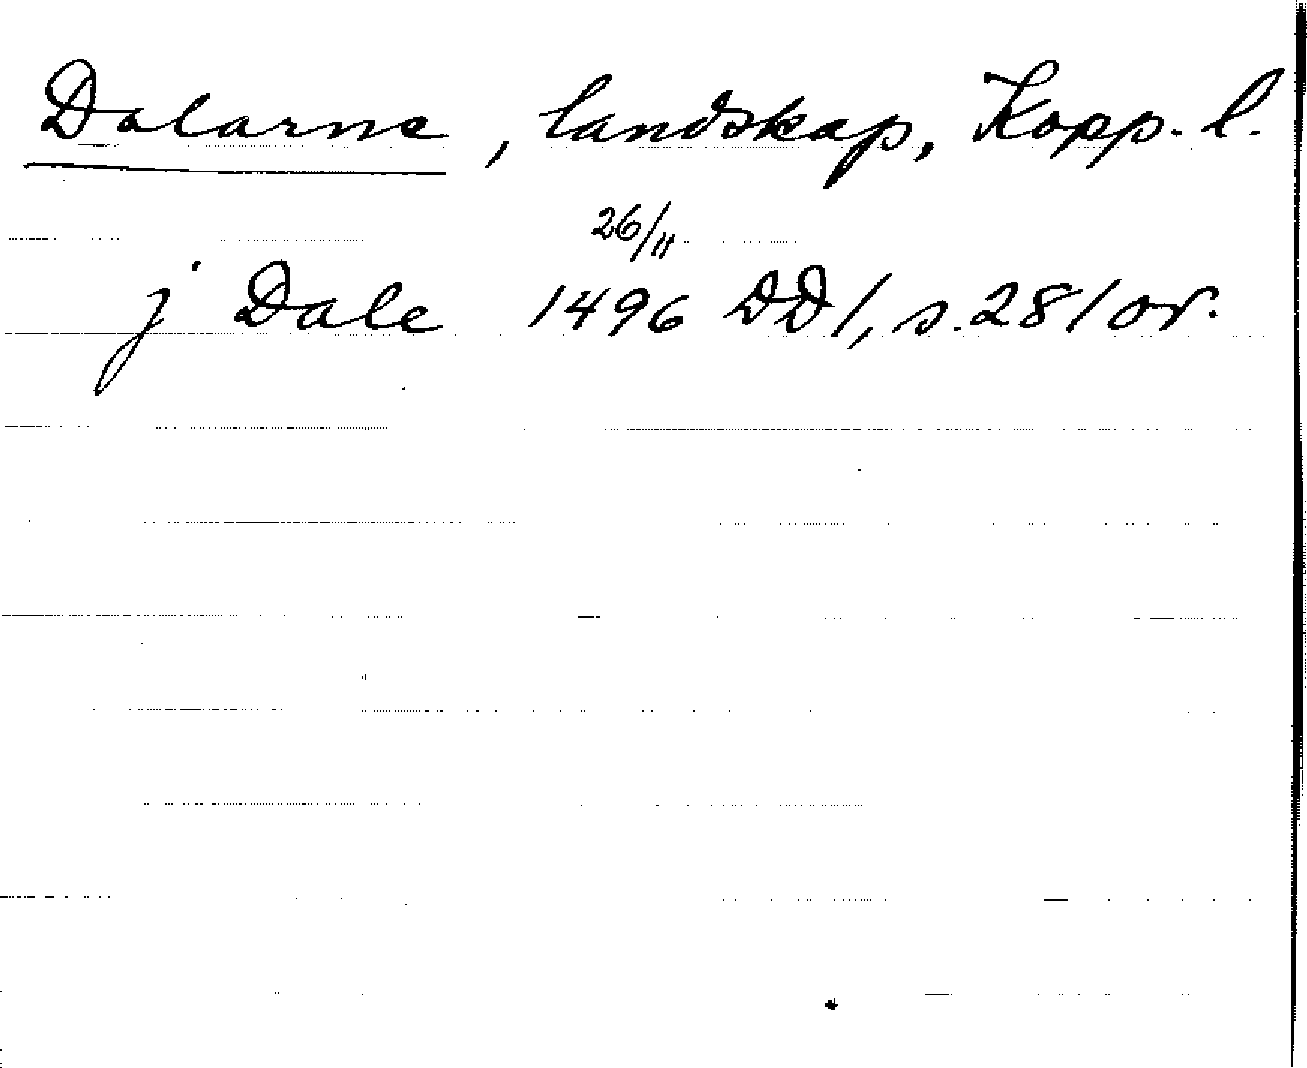 Dalarne, landskap, Kopp. l.
26/11
j Dale 1496 DD1, s. 281 or.